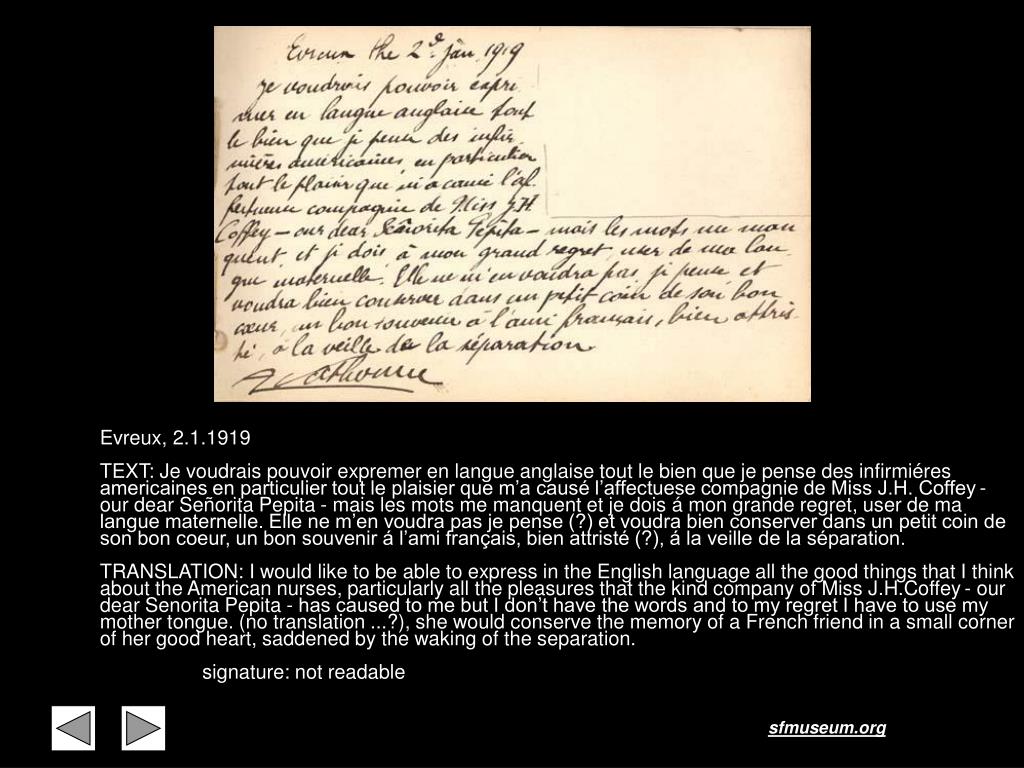 Evreux the 2d. jan 1919
Je voudrais pouvoir expri
mer en langue anglaise tout
le bien que je pense des infir-
mières américaines en particulier
tout le plaisir que m'a causé l'af-
fectueuse compagnie de Miss J.H.
Coffey – our dear Señorita Pepita – mais les mots me man
quent et je dois à mon grand regret, user de ma lan
gue maternelle. Elle ne m'en voudra pas je pense et
voudra bien conserver dans un petit coin de son bon
cœur, un bon souvenir à l'ami français, bien attris-
té, à la veille de la séparation
Evreux, 2.1.1919
TEXT: Je voudrais pouvoir expremer en langue anglaise tout le bien que je pense des infirmiéres
americaines en particulier tout le plaisier que m'a causé l'affectuese compagnie de Miss J.H. Coffey -
our dear Señorita Pepita - mais les mots me manquent et je dois á mon grande regret, user de ma
langue maternelle. Elle ne m'en voudra pas je pense (?) et voudra bien conserver dans un petit coin de
son bon coeur, un bon souvenir á l'ami français, bien attristé (?), á la veille de la séparation.
TRANSLATION: I would like to be able to express in the English language all the good things that I think
about the American nurses, particularly all the pleasures that the kind company of Miss J.H.Coffey - our
dear Senorita Pepita - has caused to me but I don't have the words and to my regret I have to use my
mother tongue. (no translation ...?), she would conserve the memory of a French friend in a small corner
of her good heart, saddened by the waking of the separation.
signature: not readable
sfmuseum.org